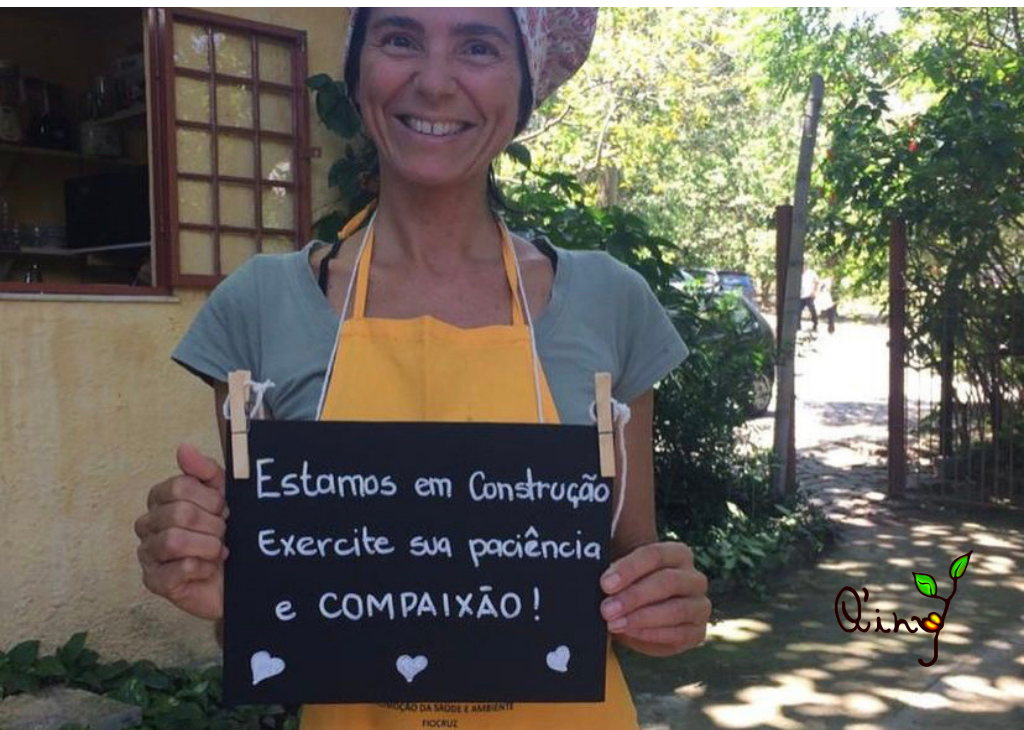 Estamos em Construção
Exercite sua paciência
e COMPAIXÃO!
MOÇÃO DA SAÚDE E AMBIENTE
FIOCRUZ